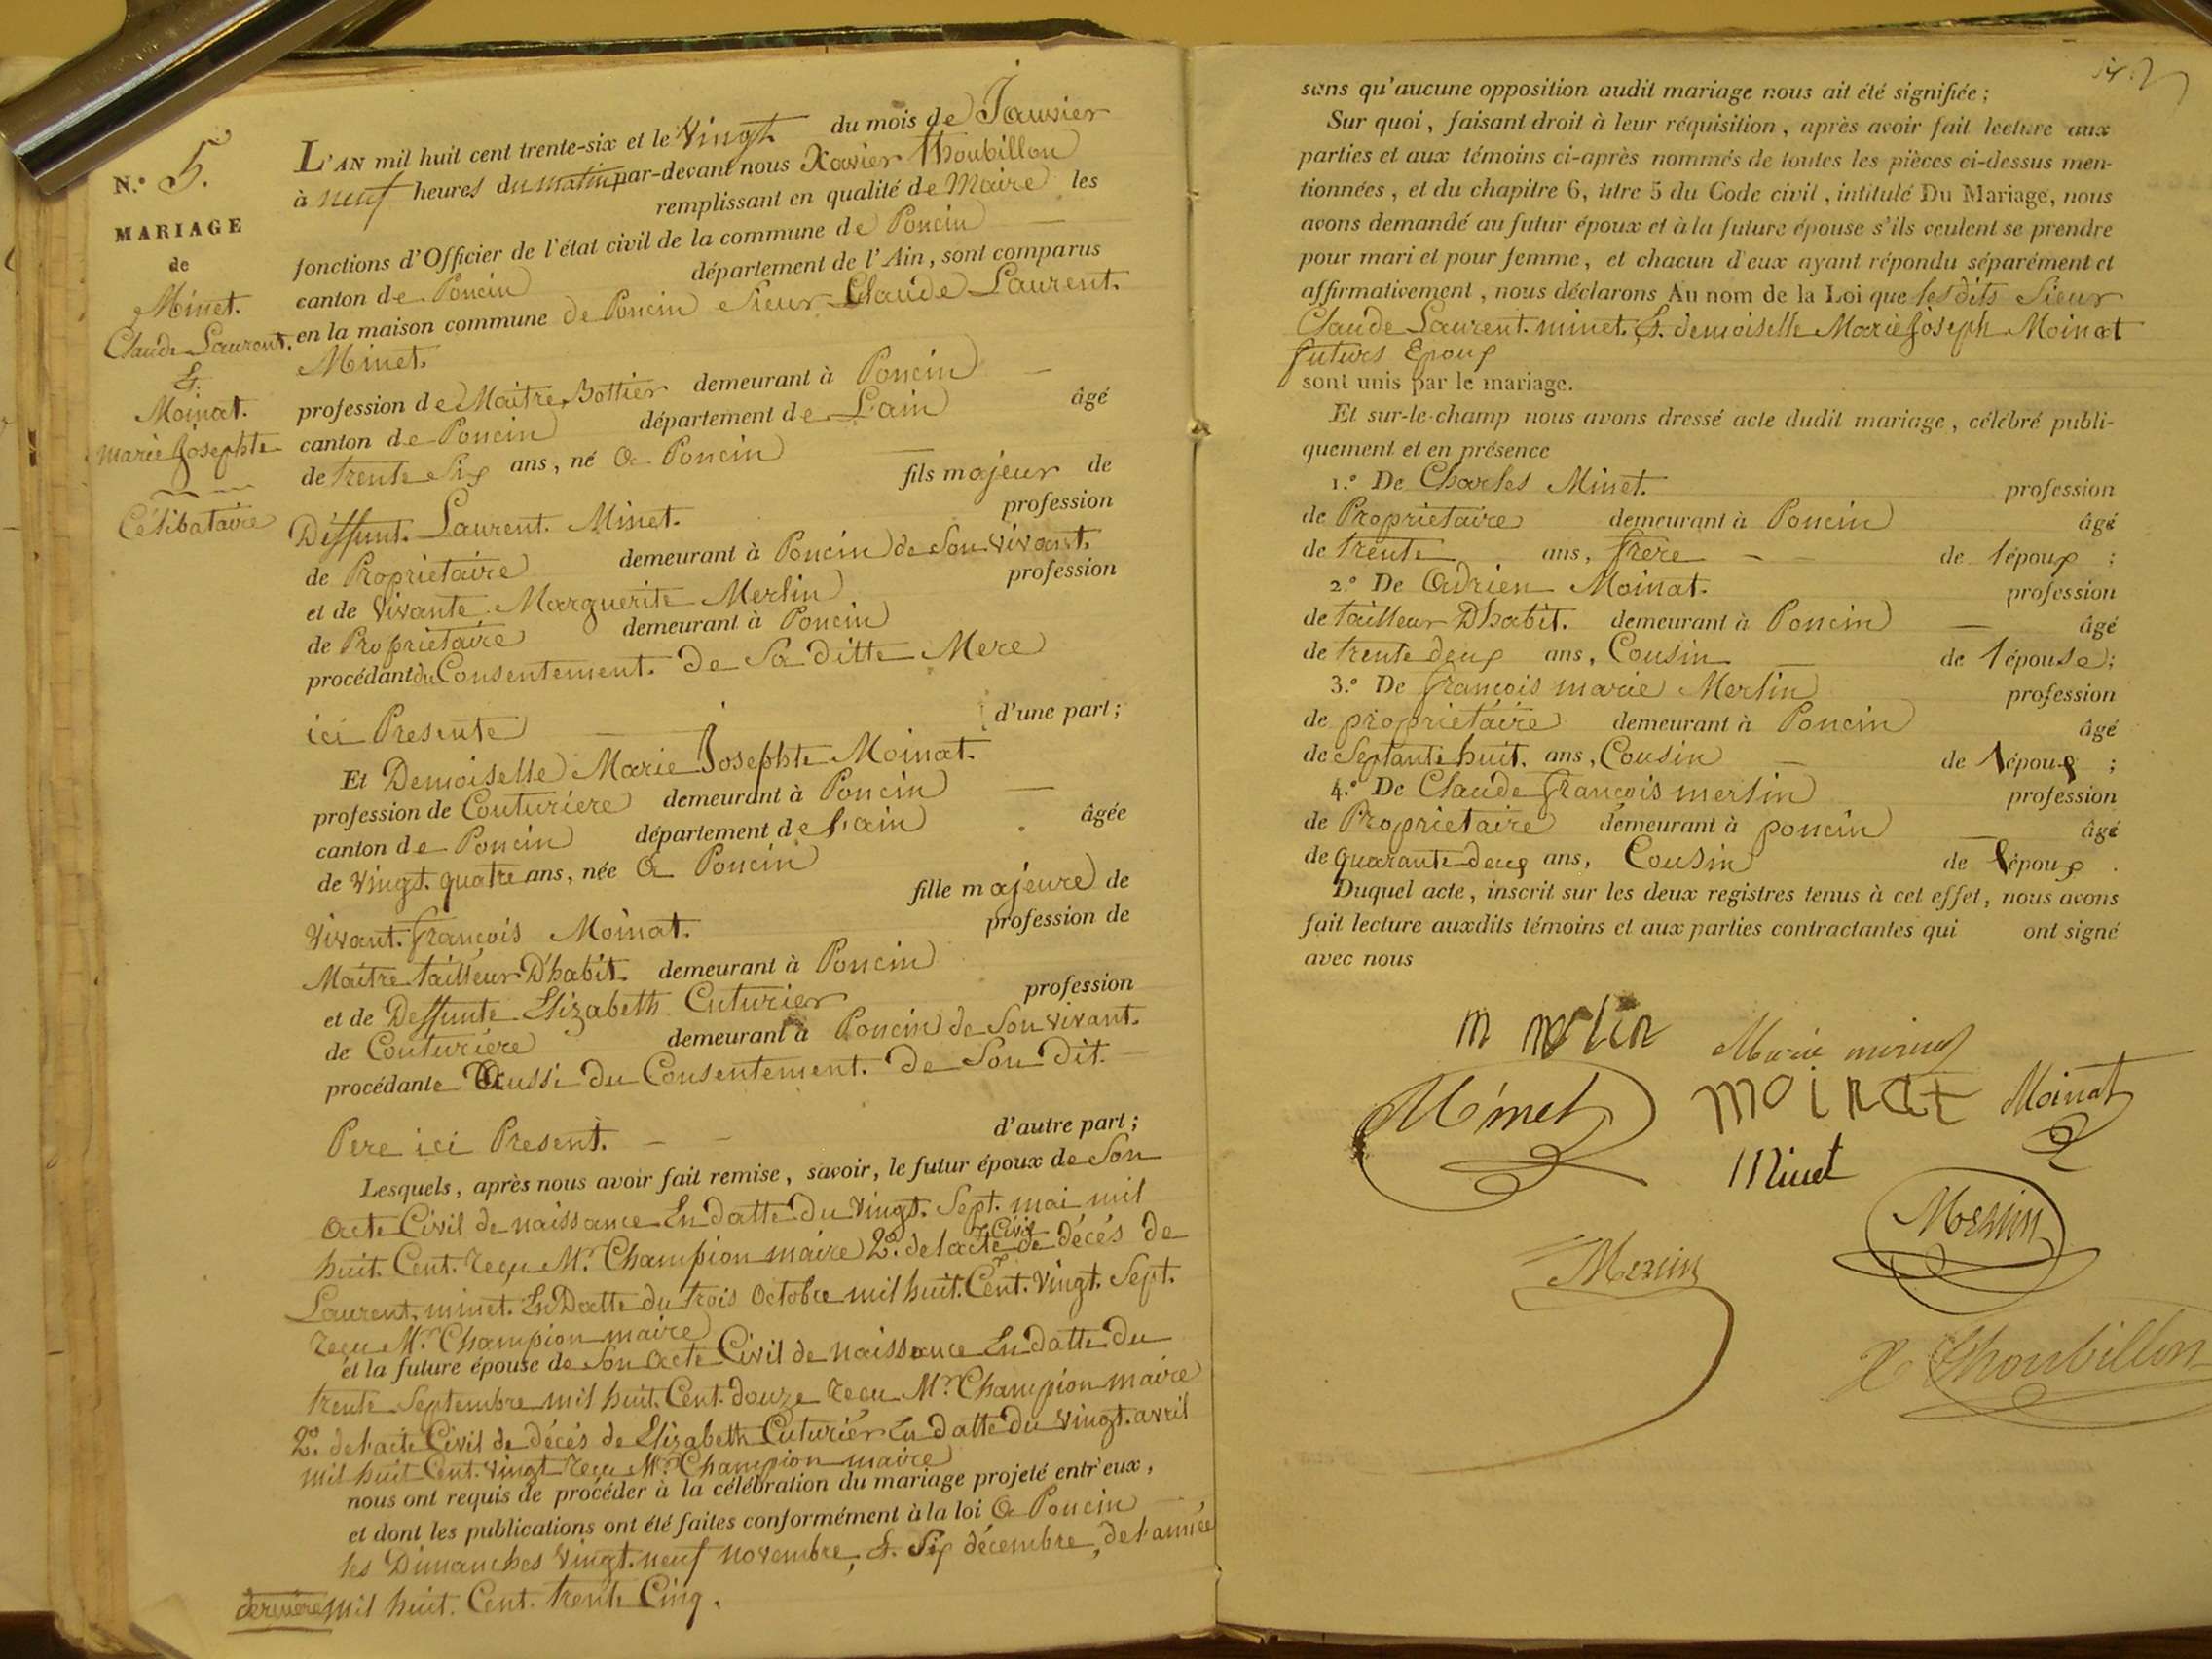 N.º 5.
MARIAGE
de
Minet.
Claude Laurent.
Et.
Moinat.
marie Josephte
Célibataire
L'AN mil huit cent trente-six et le Vingt du mois de Janvier
à neuf heures du matin par-devant nous Xavier Thoubillon
remplissant en qualité de Maire les
fonctions d'Officier de l'état civil de la commune de Poncin
canton de Poncin département de l'Ain, sont comparus
en la maison commune de Poncin Sieur Claude Laurent.
Minet.
profession de Maitre Bottier demeurant à Poncin
canton de Poncin département de L'ain âgé
de trente Six ans, né a Poncin
fils majeur de
Deffunt. Laurent. Minet. profession
de Proprietaire demeurant à Poncin de Son vivant.
et de Vivante Marguerite Merlin profession
de Proprietaire demeurant à Poncin
procédant du Consentement. De Sa ditte Mere
ici Presente d'une part;
Et Demoiselle Marie Josephte Moinat.
profession de Couturiere demeurant à Poncin
canton de Poncin département de l'ain âgée
de Vingt. quatre ans, née a Poncin
fille majeure de
Vivant. françois Moinat. profession de
Maitre tailleur D'habit. demeurant à Poncin
et de Deffunte Elizabeth Cuturier profession
de Couturiére demeurant à Poncin de Son vivant.
procédante Aussi du Consentement. De Son Dit.
Pere ici Present. d'autre part;
Lesquels, après nous avoir fait remise, savoir, le futur époux de Son
acte Civil de naissance En datte du Vingt. Sept. mai mil
huit. Cent. reçu Mr. Champion maire 2º. de l'acte Civil de décés de
Laurent. minet. En Datte du trois Octobre mil huit. Cent. Vingt. Sept.
reçu Mr. Champion maire
et la future épouse de Son acte Civil de naissance En datte du
trente Septembre mil huit. Cent. douze reçu Mr. Champion maire
2º. de l'acte Civil de décés de Elizabeth Cuturier En datte du vingt. avril
mil huit Cent. vingt reçu Mr. Champion maire
nous ont requis de procéder à la célébration du mariage projeté entr'eux,
et dont les publications ont été faites conformément à la loi a Poncin
les Dimanches Vingt. neuf novembre, Et. Six décembre, de l'année
derniere mil huit. Cent. trente Cinq.
sans qu'aucune opposition audit mariage nous ait été signifiée;
Sur quoi, faisant droit à leur réquisition, après avoir fait lecture aux
parties et aux témoins ci-après nommés de toutes les pièces ci-dessus men-
tionnées, et du chapitre 6, titre 5 du Code civil, intitulé Du Mariage, nous
avons demandé au futur époux et à la future épouse s'ils veulent se prendre
pour mari et pour femme, et chacun d'eux ayant répondu séparément et
affirmativement, nous déclarons Au nom de la Loi que les dits Sieur
Claude Laurent. minet. Et. demoiselle Marie Joseph Moinat
futurs Epoux
sont unis par le mariage.
Et sur-le-champ nous avons dressé acte dudit mariage, célébré publi-
quement et en présence
1.º De Charles Minet. profession
de Proprietaire demeurant à Poncin âgé
de trente ans, frere de l'époux;
2.º De Adrien Moinat. profession
de tailleur D'habit. demeurant à Poncin âgé
de trente deux ans, Cousin de l'épouse;
3.º De françois marie Merlin profession
de proprietaire demeurant à Poncin âgé
de Septante huit. ans, Cousin de l'époux;
4.º De Claude françois merlin profession
de Proprietaire demeurant à poncin âgé
de quarante deux ans, Cousin de l'époux.
Duquel acte, inscrit sur les deux registres tenus à cet effet, nous avons
fait lecture auxdits témoins et aux parties contractantes qui ont signé
avec nous
Minet moinat Moinat
Minet
Merlin
Merlin
X. Thoubillon